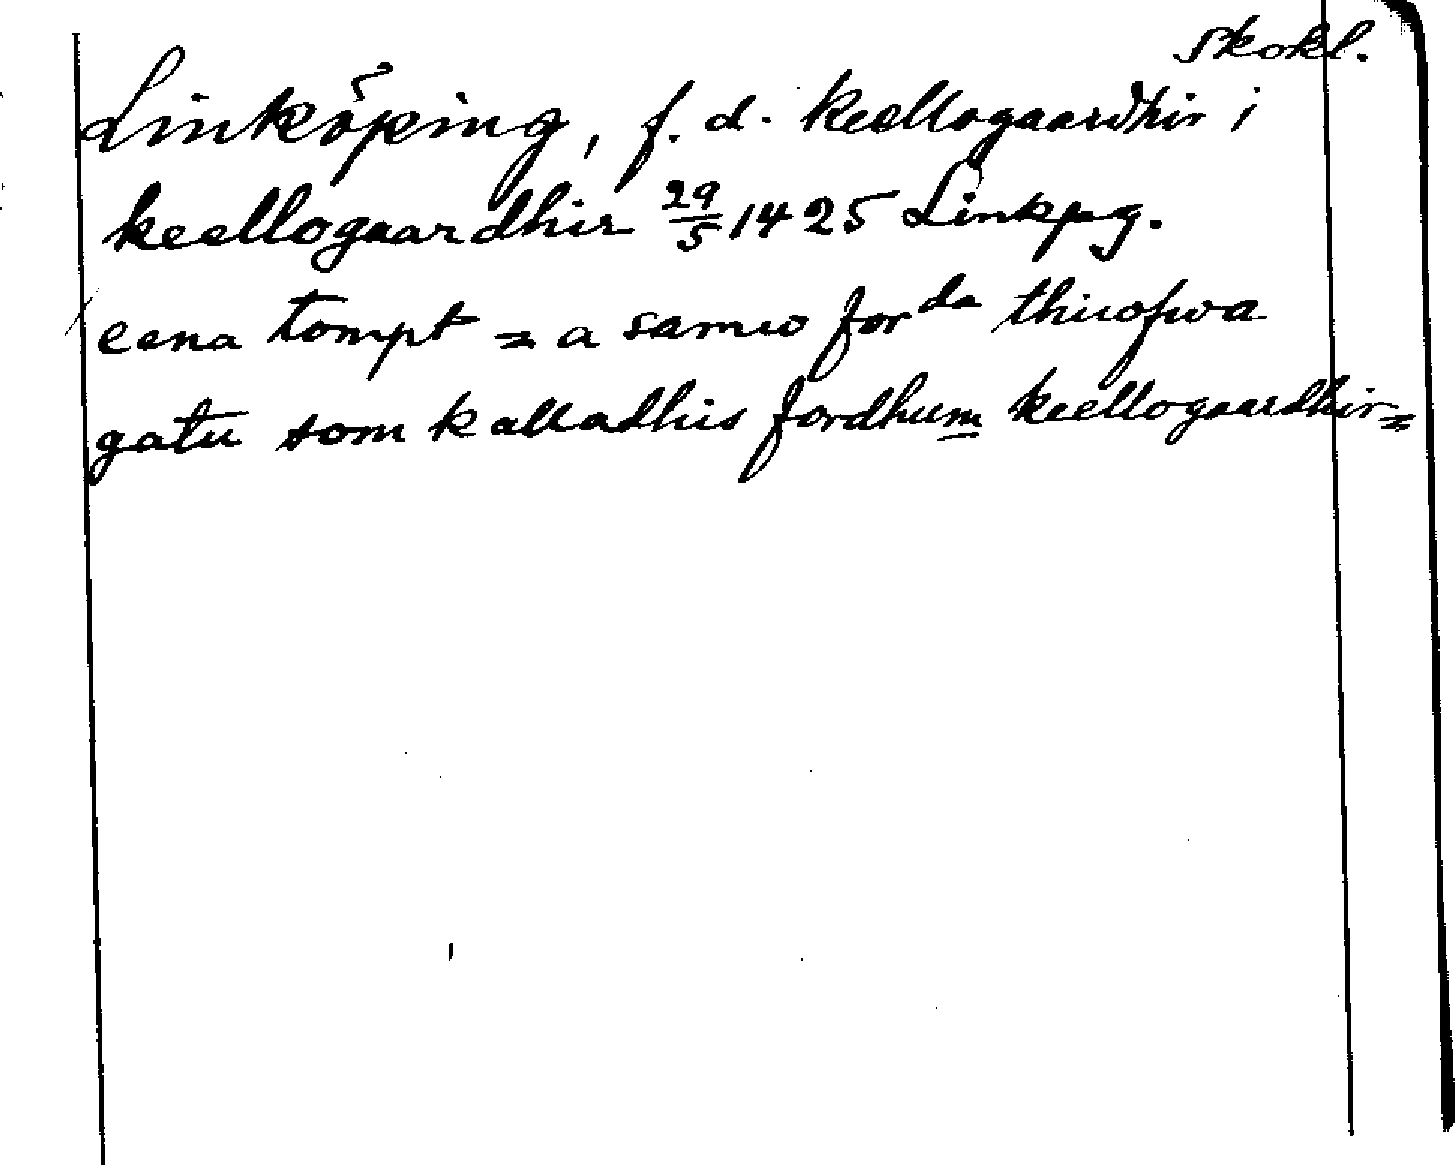 Skokl.
Linköping, f. d. keellogaardhir i
keellogaardhir 29/5 1425 Linkpg.
eena tompt = a samω for da thiωfwa
gatu som kalladhis fordhum keellogaardhir=